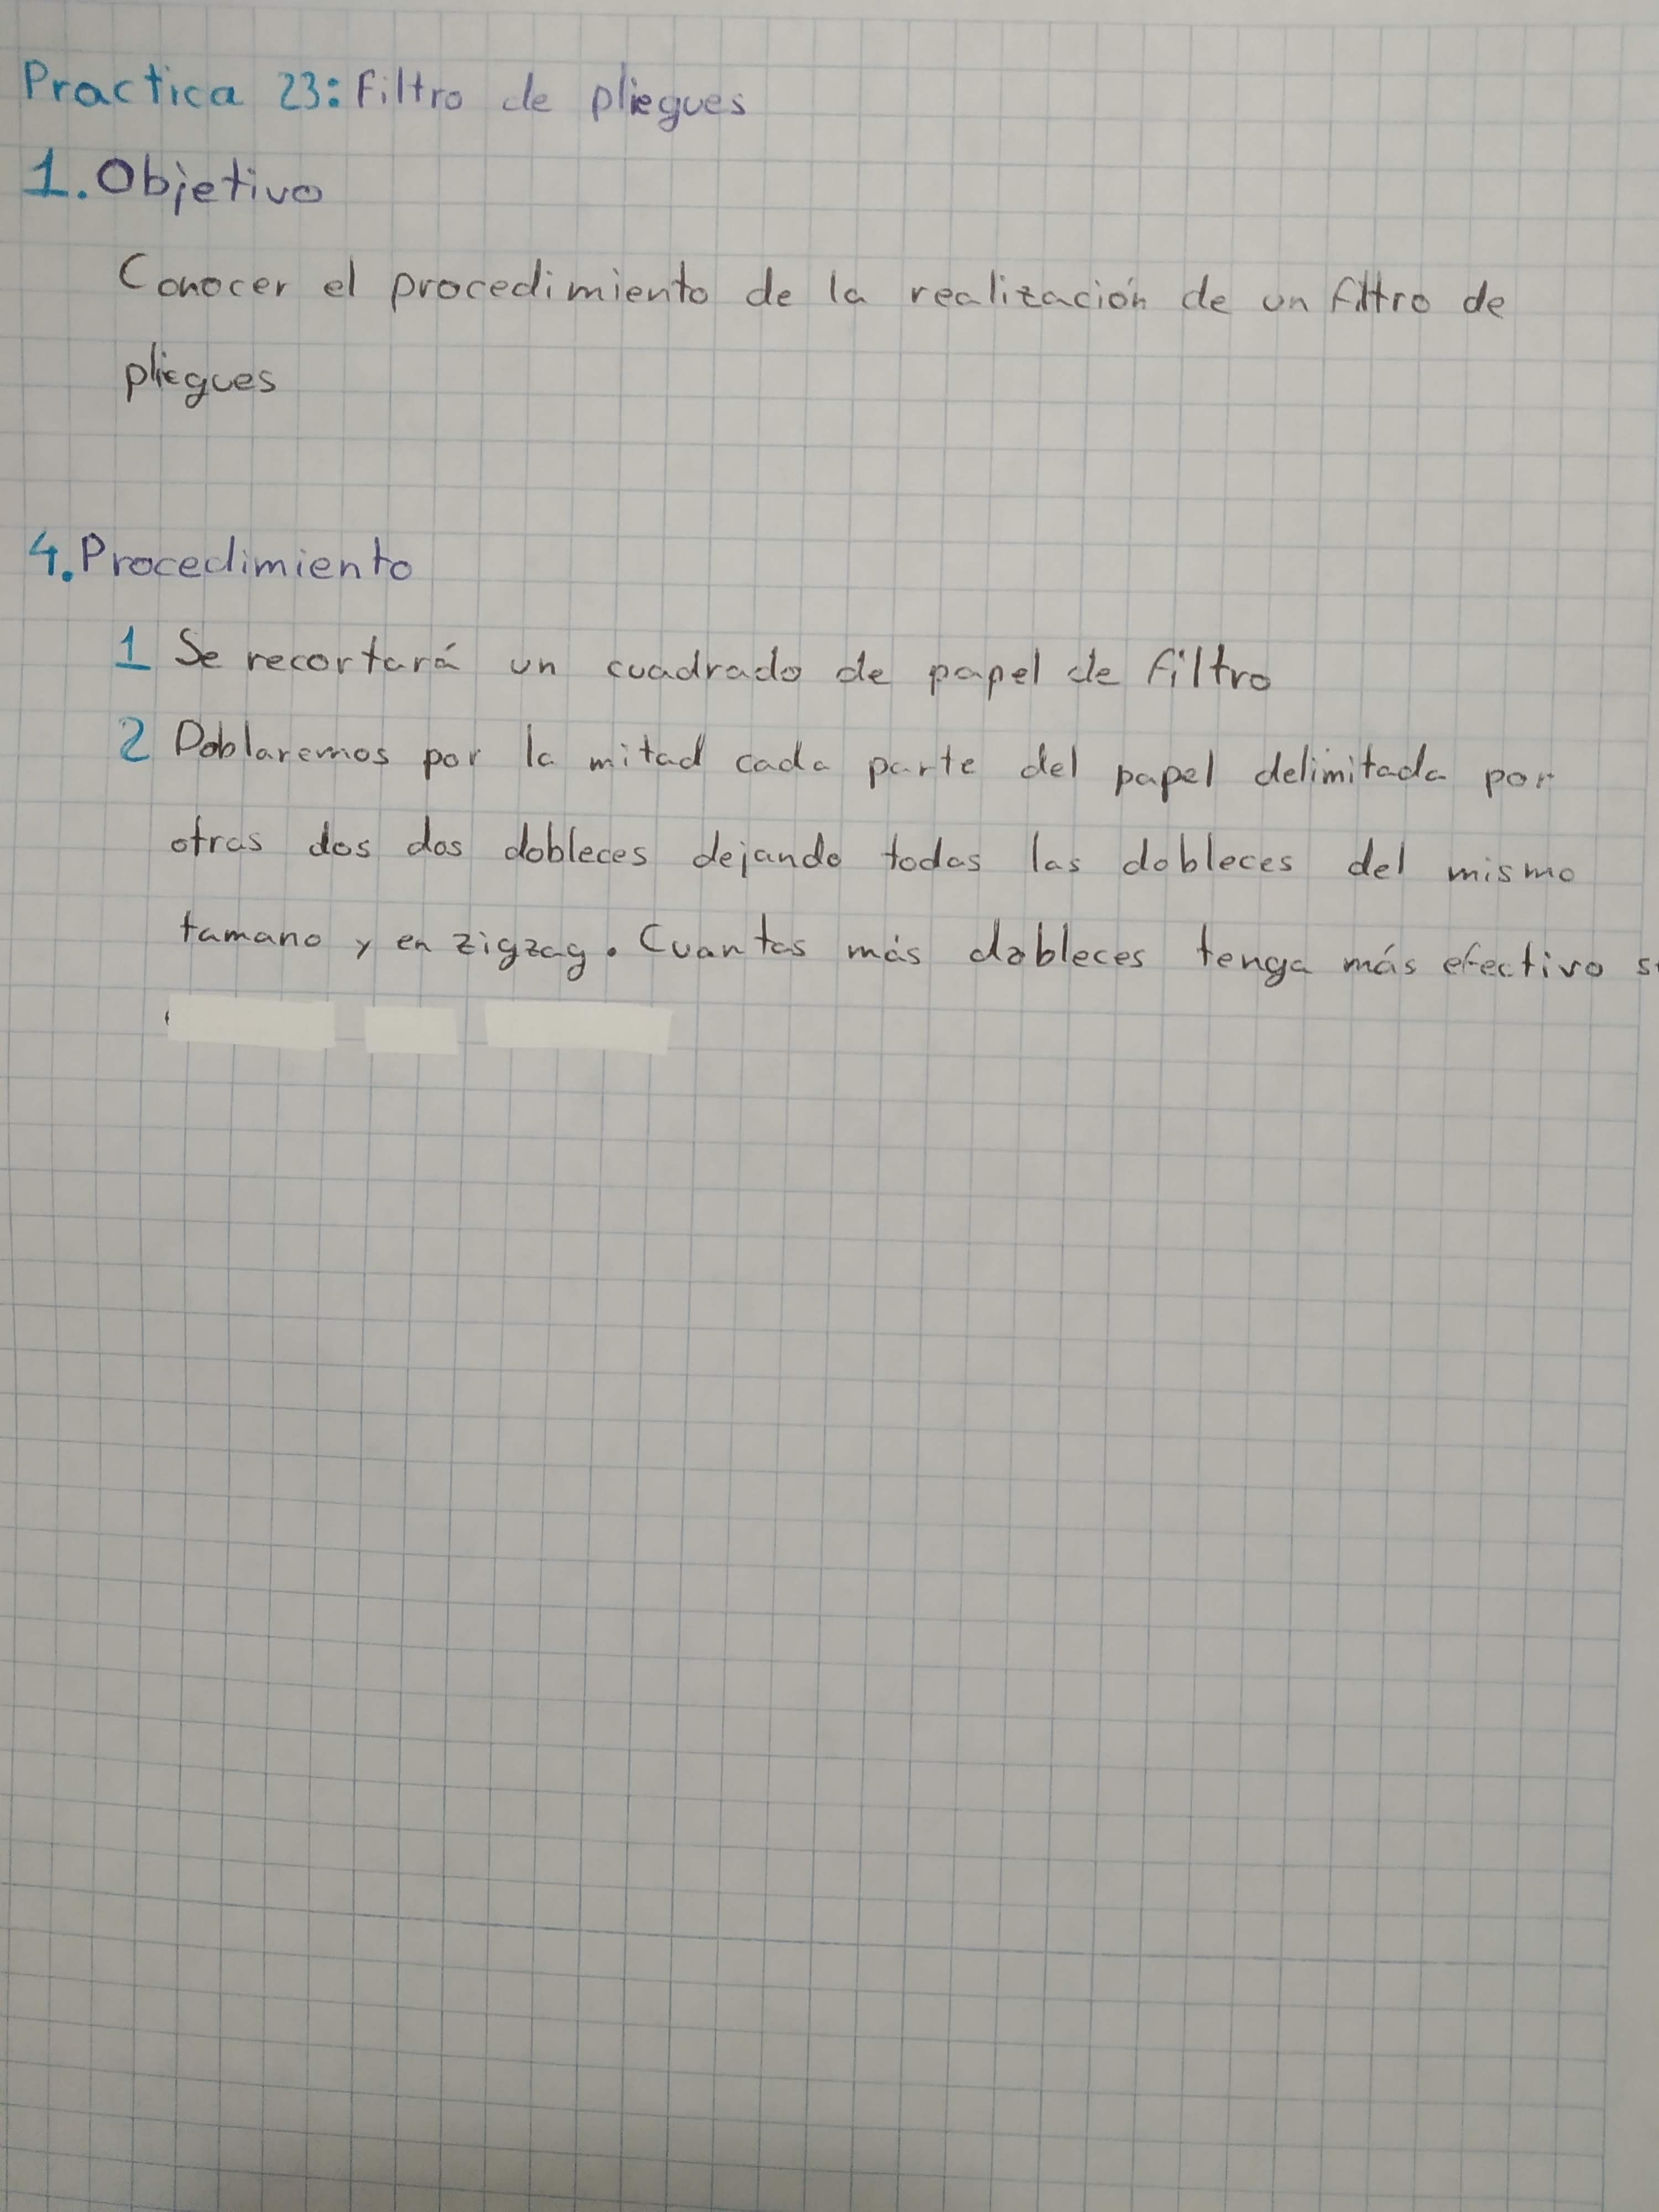 Practica 23: Filtro de pliegues
1. Objetivo
Conocer el procedimiento de la realización de un filtro de
pliegues
4. Procedimiento
1 Se recortará un cuadrado de papel de filtro
2 Doblaremos por la mitad cada parte del papel delimitada por
otras dos dos dobleces dejando todas las dobleces del mismo
tamano y en zigzag. Cuantas más dobleces tenga más efectivo